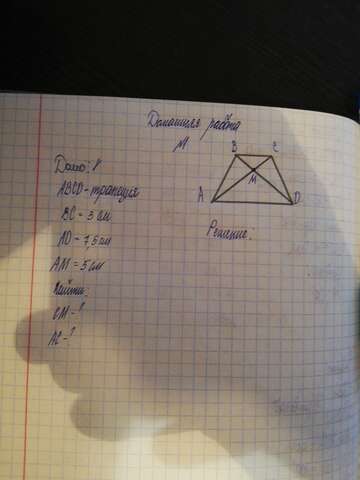 Домашняя работа
№
B C
M
A D
Дано:
ABCD - трапеция
BC = 3 см
AD = 7,5 см
AM = 5 см
Решение:
Найти:
CM - ?
AC - ?